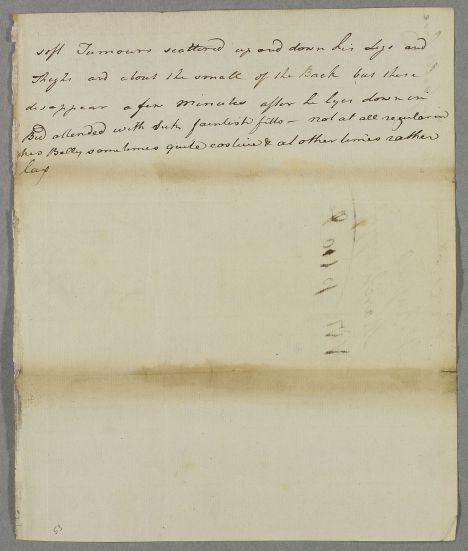 soft Tumours scattered up and down his Legs and
Thighs and about the small of the Back but these
disappear a few minutes after he lyes down in
Bed attended with faintish fitts — not at all regular in
his Belly sometimes quite costive & at other times rather
lax